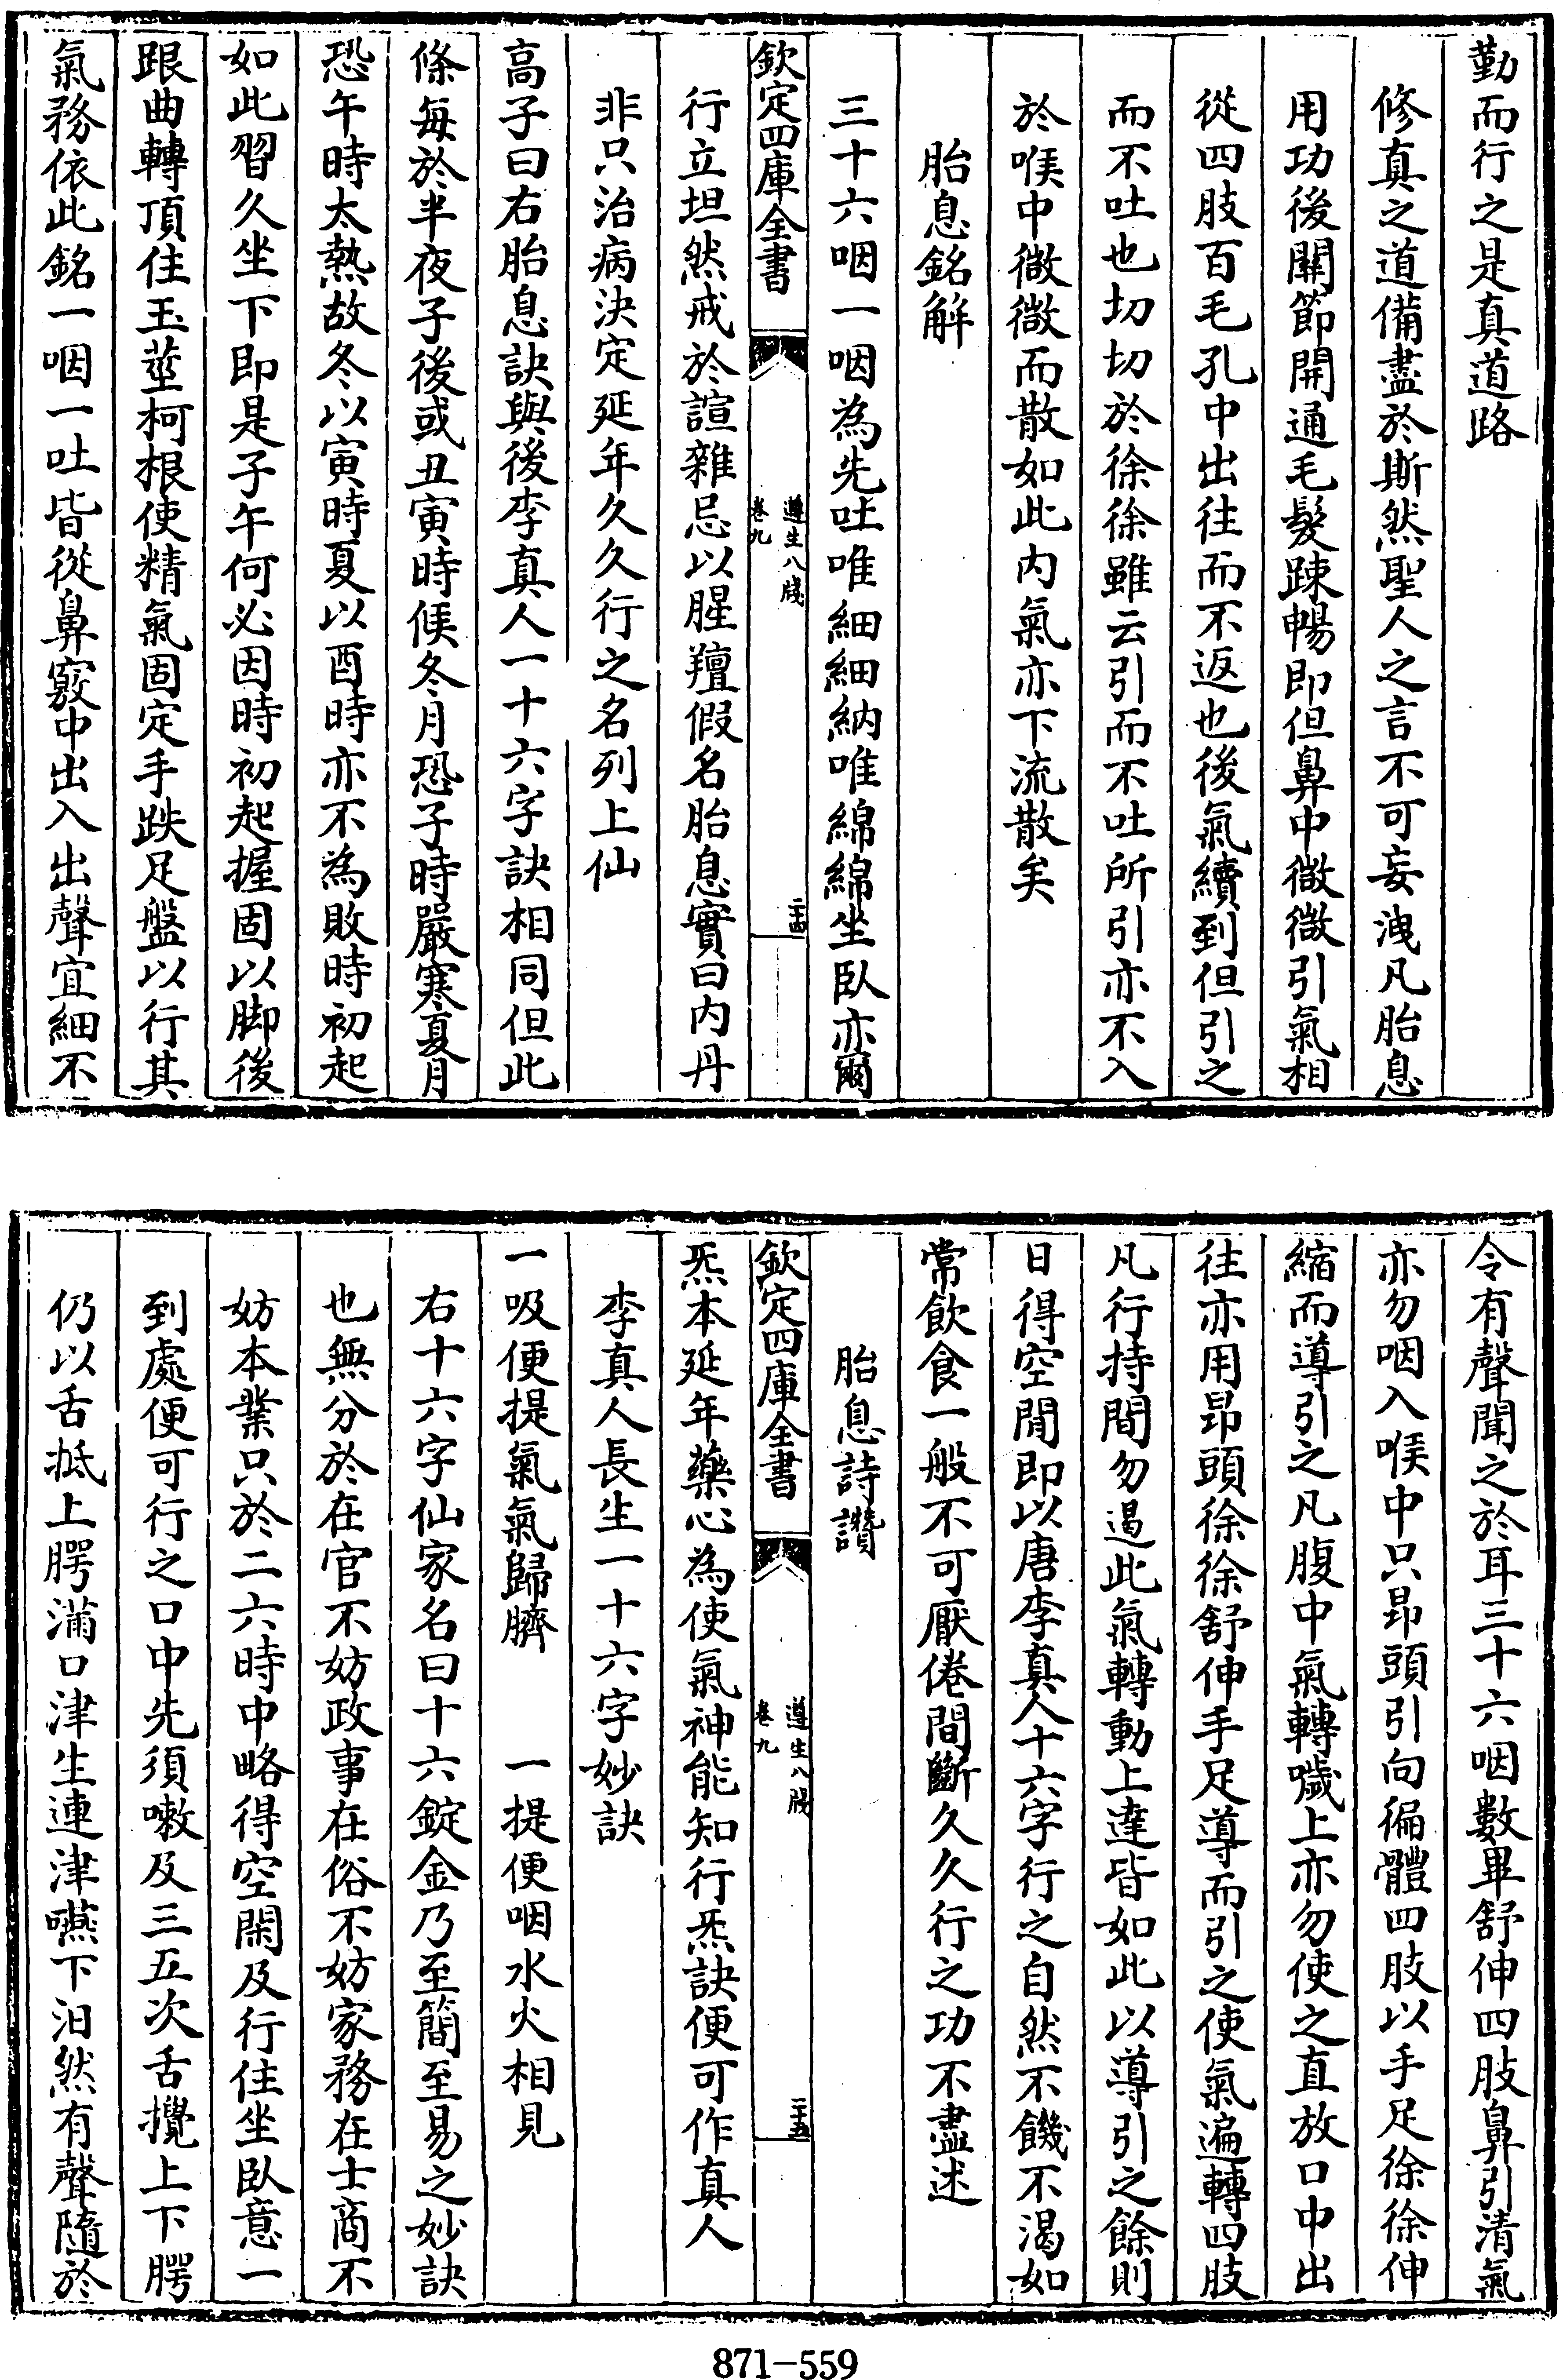 勤而行之是真道路
修真之道備盡於斯然聖人之言不可妄洩凡胎息
用功後關節開通毛髮踈暢即但鼻中微微引氣相
從四肢百毛孔中出往而不返也後氣續到但引之
而不吐也切切於徐徐雖云引而不吐所引亦不入
於喉中微微而散如此内氣亦下流散矣
胎息銘解
三十六咽一咽為先吐唯細細納唯綿綿坐臥亦爾
欽定四庫全書
遵生八牋
卷九
二十四
行立坦然戒於諠雜忌以腥羶假名胎息實曰内丹
非只治病決定延年久久行之名列上仙
高子曰右胎息訣與後李真人一十六字訣相同但此
條每於半夜子後或丑寅時候冬月恐子時嚴寒夏月
恐午時太熱故冬以寅時夏以酉時亦不為敗時初起
如此習久坐下即是子午何必因時初起握固以脚後
跟曲轉頂住玉莖柯根使精氣固定手趺足盤以行其
氣務依此銘一咽一吐皆從鼻竅中出入出聲宜細不
令有聲聞之於耳三十六咽數畢舒伸四肢鼻引清氣
亦勿咽入喉中只昂頭引向徧體四肢以手足徐徐伸
縮而導引之凡腹中氣轉噦上亦勿使之直放口中出
往亦用昂頭徐徐舒伸手足導而引之使氣遍轉四肢
凡行持間勿遏此氣轉動上達皆如此以導引之餘則
日得空閒即以唐李真人十六字行之自然不饑不渴如
常飲食一般不可厭倦間斷久久行之功不盡述
胎息詩讚
欽定四庫全書
遵生八牋
卷九
二十五
炁本延年藥心為使氣神能知行炁訣便可作真人
李真人長生一十六字妙訣
一吸便提氣氣歸臍　一提便咽水火相見
右十六字仙家名曰十六錠金乃至簡至易之妙訣
也無分於在官不妨政事在俗不妨家務在士商不
妨本業只於二六時中略得空閑及行住坐臥意一
到處便可行之口中先須嗽及三五次舌攪上下腭
仍以舌抵上腭滿口津生連津嚥下汩然有聲隨於
871-559